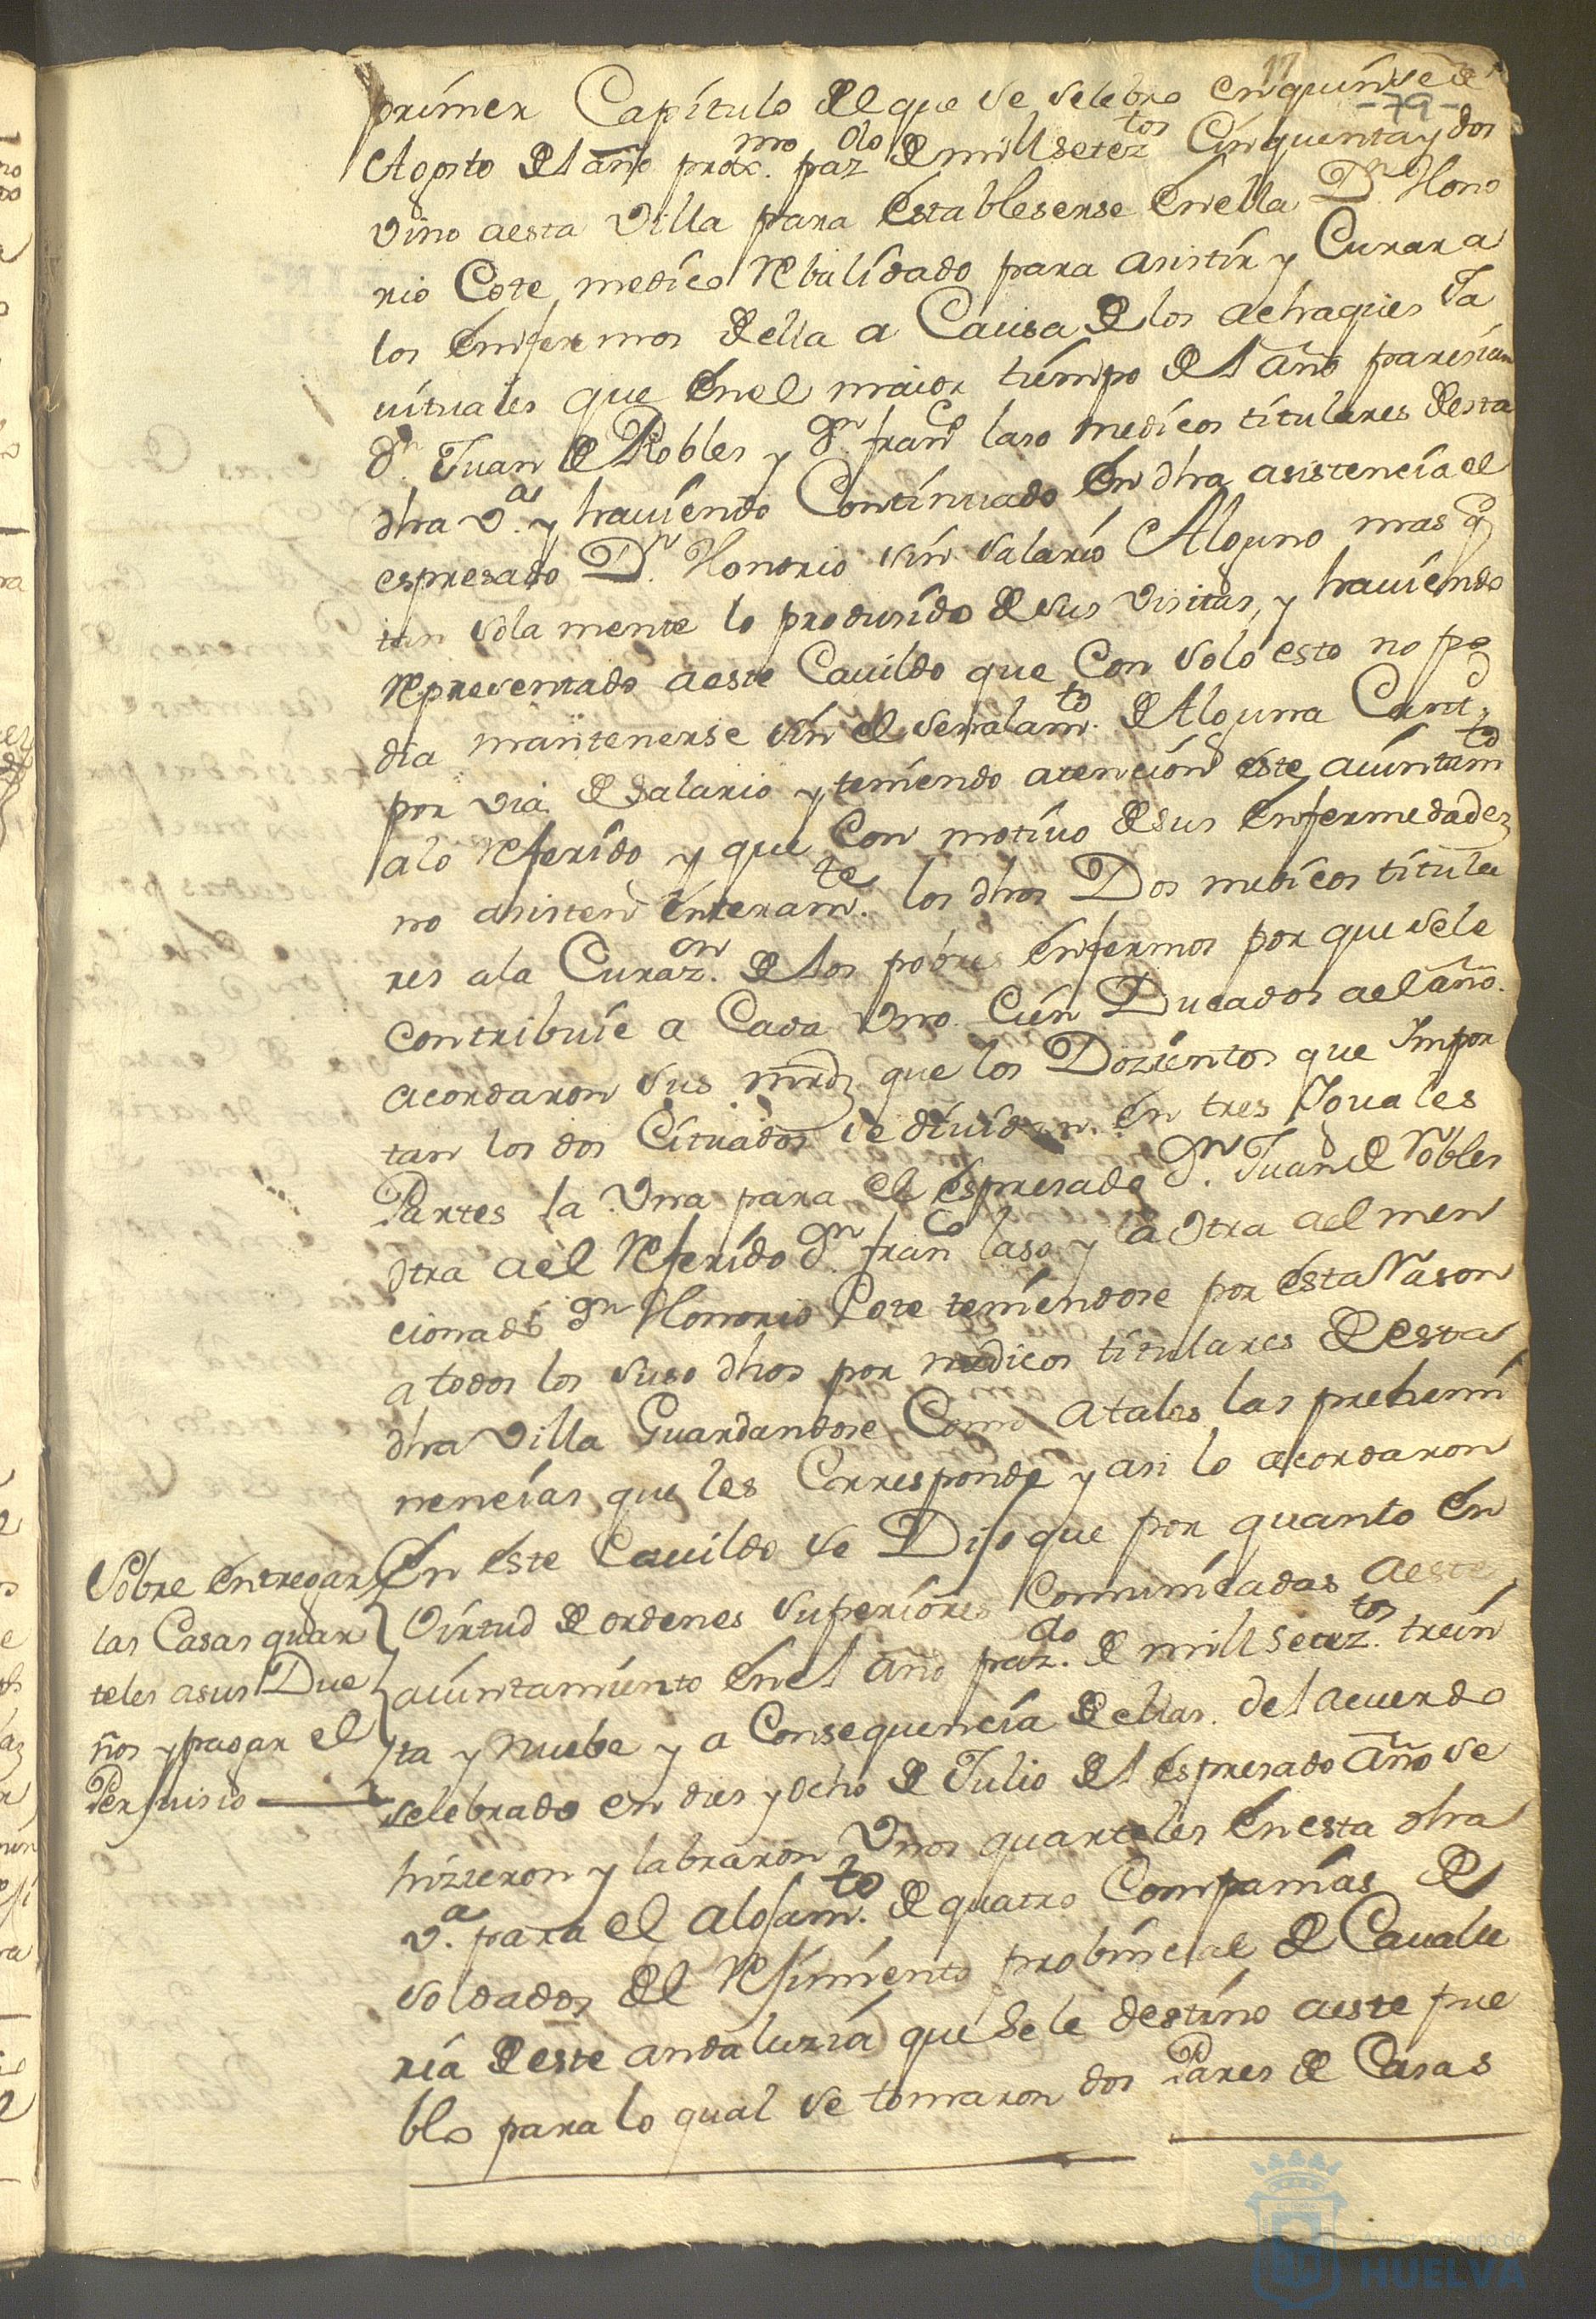 17
-79-
primer Capítulo del que se selebro en quinse de
Agosto del año prox.mo paz.do de mill setez.tos Cinquenta y dos
vino a esta Villa para Estableserse En ella D.n Hono
rio Cote medico Rebalidado para asistir y Curar a
los Emfermos de ella a Causa de los achaques Ja
vituales que En el maior tiempo del año paresian
d.n Juan de Robles y d.n fran.co laso medicos titulares desta
dha V.a y haviendo Continuado En dha asistencia el
espresado D.n Honorio sin salario Alguno mas q
tan sola mente lo produsido de sus visitas, y haviendo
Representado a este Cavildo que Con solo esto no po
dia mantenerse sin el señalam.to de Alguna Cantd
por via de salario y teniendo atencion este aiuntam.to
a lo Referido y que Con motivo de sus Enfermedades
no asisten Enteram.te los dhos Dos medicos titula
res a la Curaz.on de los pobres Enfermos por que se le
contribuie a Cada Uno Cien Ducados a el año.
acordaron sus mrds que los Dozientos que Impor
tan los dos Cituados se dividan en tres Iguales
Partes la Una para el Espresado d.n Juan de Robles
Otra a el Referido d.n fran.co laso y la Otra a el men
cionado d.n Honorio Cote teniendose por Esta Rason
a todos los suso dhos por medicos titulares de esta
dha Villa Guardandose Como A tales las prehemi
nencias que les Corresponde y asi lo acordaron
En este Cavildo se Dijo que por quanto En
Virtud de ordenes superiores Comunicadas a este
aiuntamiento En el año paz.do de mill setez.tos trein
ta y nuebe y a Consequencia de ellas del acuerdo
selebrado en dies y ocho de Julio del Espresado Año se
hizieron y labraron Unos quarteles En esta dha
V.a para el alojam.to de quatro Compañias de
soldados del Rejimiento probincial de Cavalle
ria de este andaluzia que se le destino a este pue
blo para lo qual se tomaron dos Pares de Casas
Sobre Entregar
las Casas quar
teles a sus Due
ños y pagar el
Perjuisio
Ayuntamiento de
HUELVA